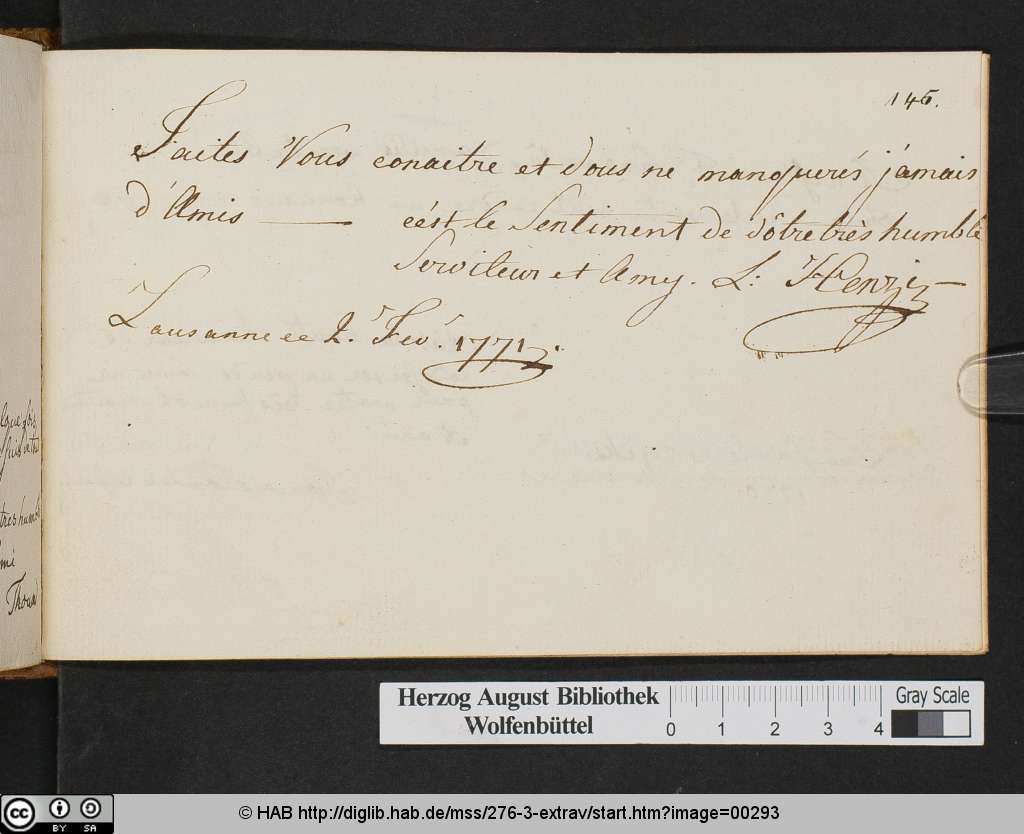 146.
Faites Vous conaitre et Vous ne manquerés jámais
d'Amis — cést le Sentiment de Vôtre très humble
Serviteur et Amy. L: Henzi
Lausanne ce 2. Fev. 1771.
lque fois
tres humbl
mi
Herzog August Bibliothek
Wolfenbüttel
0 1 2 3 4
Gray Scale
cc BY SA
© HAB http://diglib.hab.de/mss/276-3-extrav/start.htm?image=00293